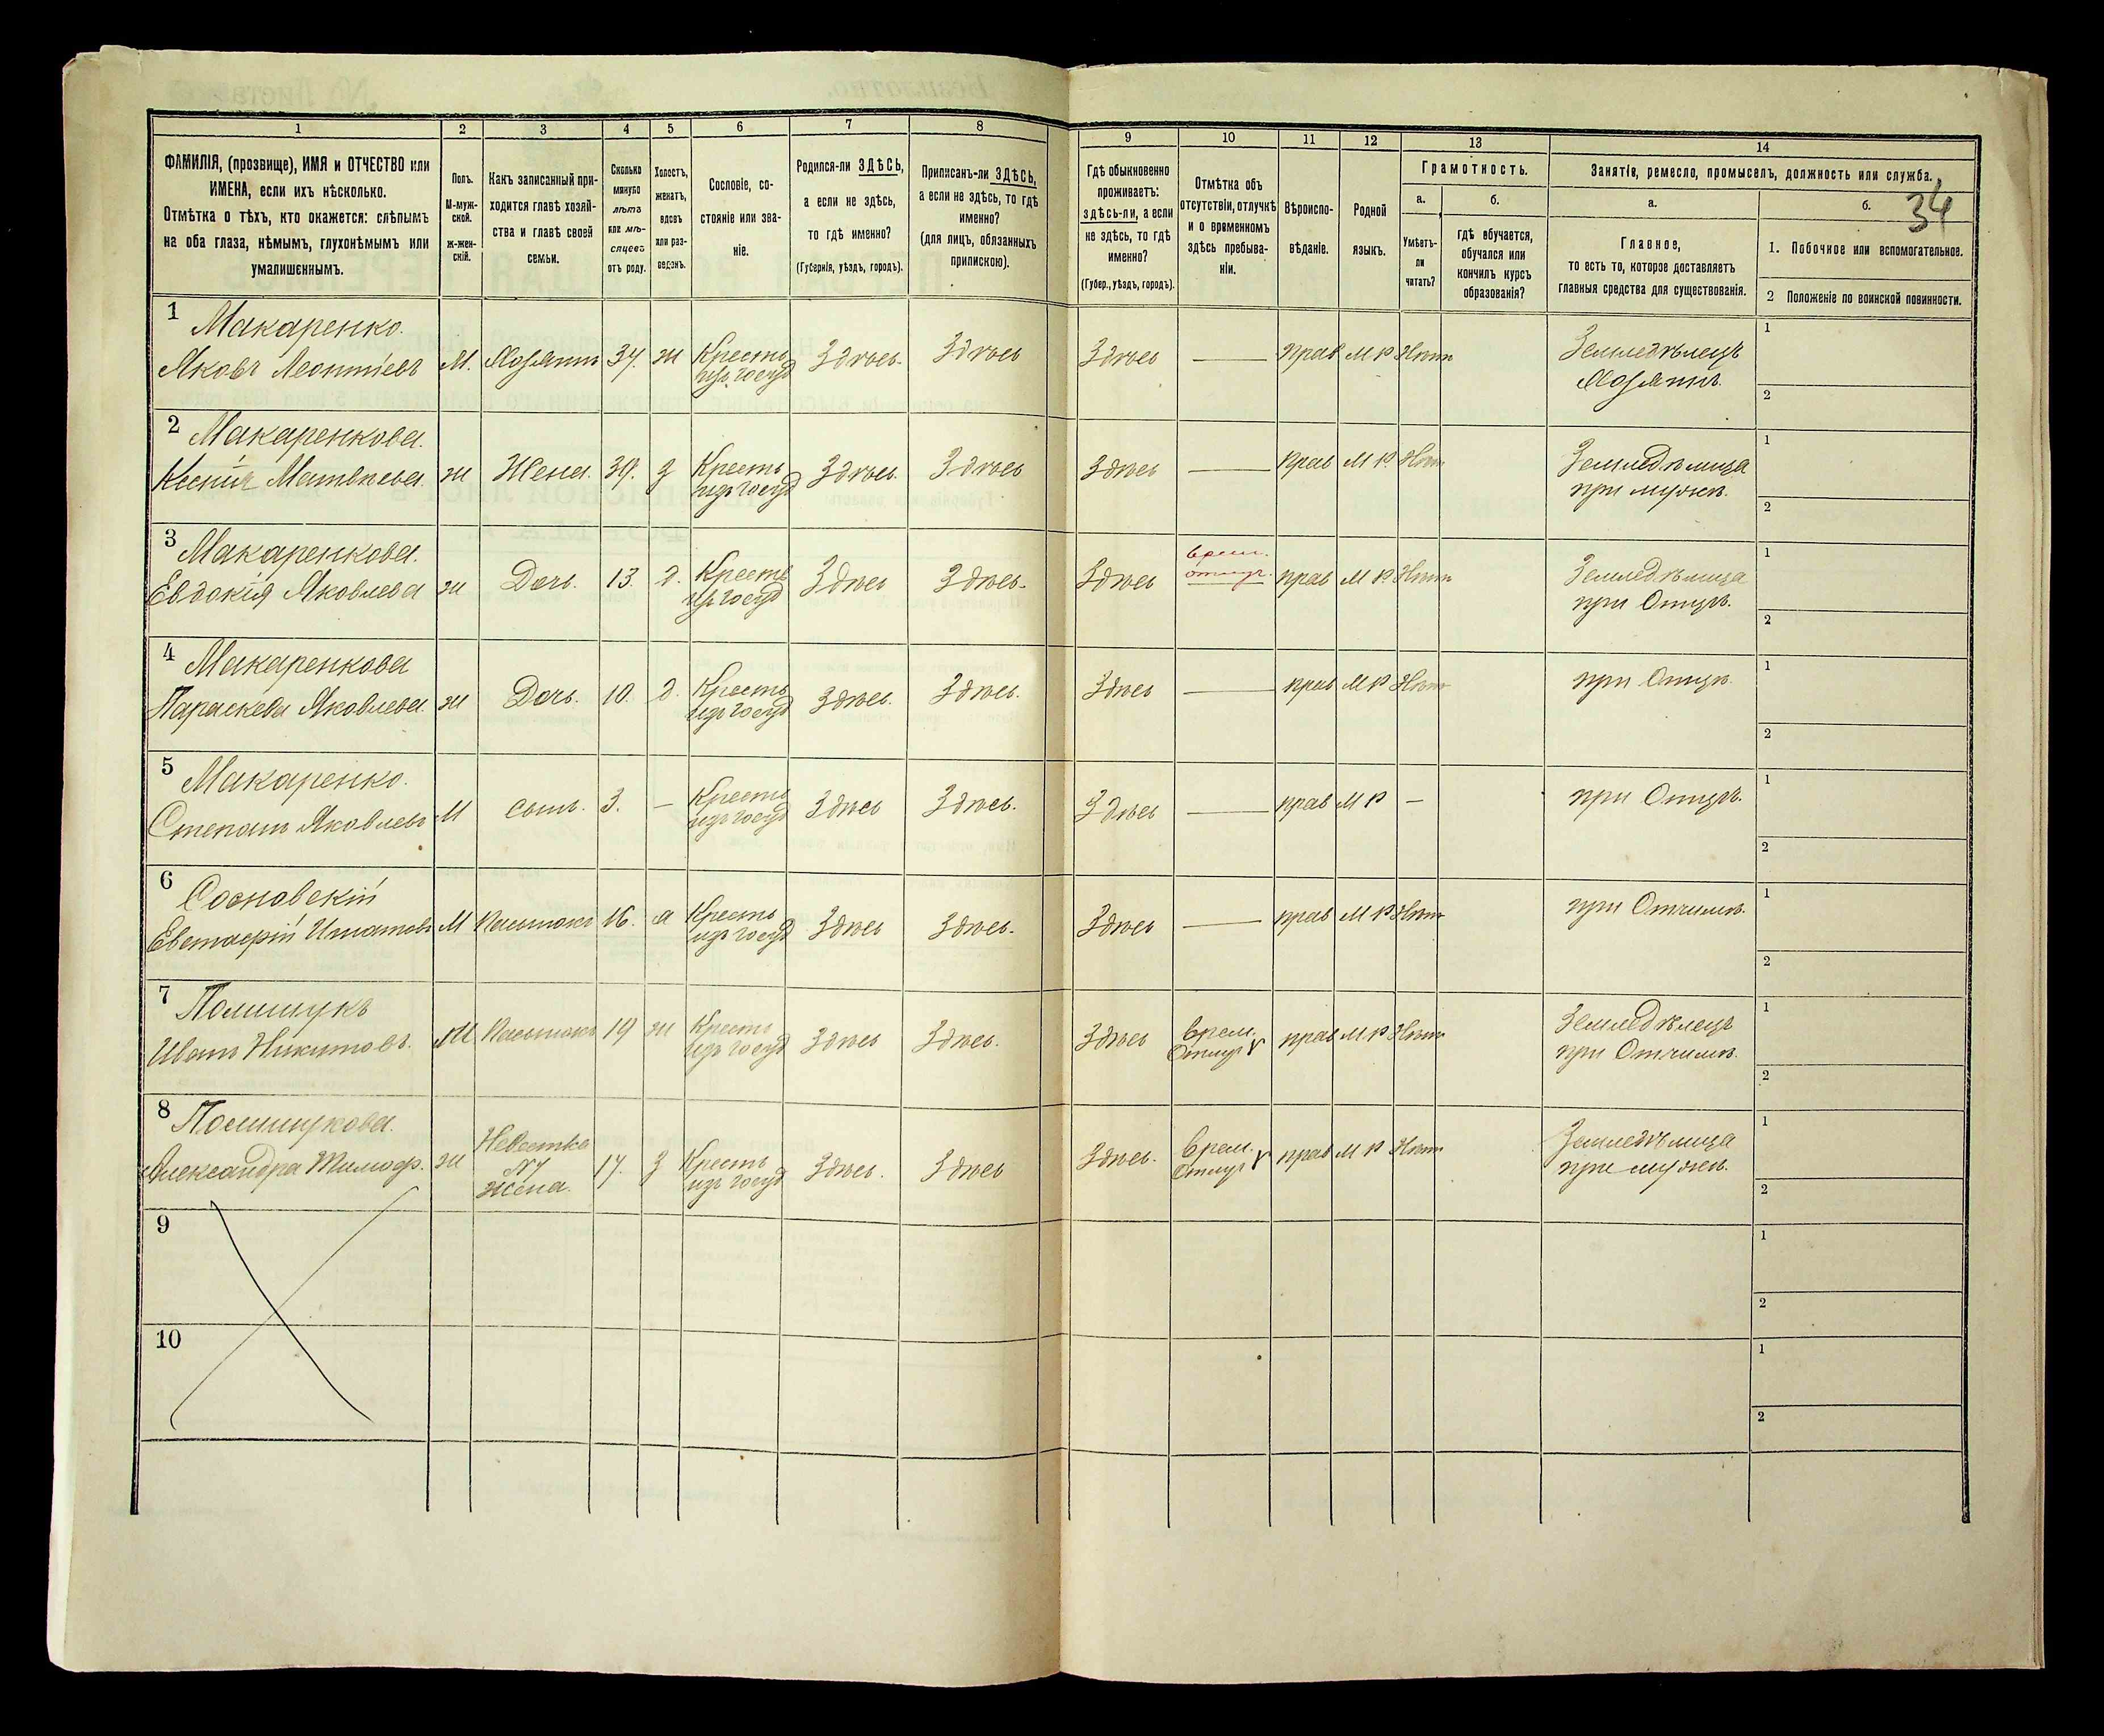 1
2
3
4
5
6
7
8
9
10
11
12
13
14
34
ФАМИЛІЯ, (прозвище), ИМЯ и ОТЧЕСТВО или
ИМЕНА, если ихъ нѣсколько.
Отмѣтка о тѣхъ, кто окажется: слѣпымъ
на оба глаза, нѣмымъ, глухонѣмымъ или
умалишеннымъ.
Полъ.
М-муж-
ской.
ж-жен-
скій.
Какъ записанный при-
ходится главѣ хозяй-
ства и главѣ своей
семьи.
Сколько
минуло
лѣтъ
или мѣ-
сяцевъ
отъ роду.
Холостъ,
женатъ,
вдовъ
или раз-
веденъ.
Сословіе, со-
стояніе или зва-
ніе.
Родился-ли ЗДѢСЬ,
а если не здѣсь,
то гдѣ именно?
(Губернія, уѣздъ, городъ).
Приписанъ-ли ЗДѢСЬ,
а если не здѣсь, то гдѣ
именно?
(для лицъ, обязанныхъ
припискою).
Гдѣ обыкновенно
проживаетъ:
здѣсь-ли, а если
не здѣсь, то гдѣ
именно?
(Губер., уѣздъ, городъ).
Отмѣтка объ
отсутствіи, отлучкѣ
и о временномъ
здѣсь пребыва-
ніи.
Вѣроиспо-
вѣданіе.
Родной
языкъ.
Грамотность.
а.
Умѣетъ-
ли
читать?
б.
гдѣ обучается,
обучался или
кончилъ курсъ
образованія?
Занятіе, ремесло, промыселъ, должность или служба.
а.
Главное,
то есть то, которое доставляетъ
главныя средства для существованія.
б.
1. Побочное или вспомогательное.
2 Положеніе по воинской повинности.
1 Макаренко.
Яковъ Леонтіевъ М. Хозяинъ 37. ж Кресть Здѣсь. Здѣсь Здѣсь — прав М Р Нѣтъ Земледѣлецъ 1
изъ госуд Хозяинъ. 2
2 Макаренкова.
Ксенія Матвѣева ж Жена. 39. з Кресть Здѣсь. Здѣсь Здѣсь — прав М Р Нѣтъ Земледѣлица 1
изъ госуд при мужѣ. 2
3 Макаренкова. врем.
Евдокія Яковлева ж Дочь. 13. д. Кресть Здѣсь Здѣсь. Здѣсь отлуч. прав М Р Нѣтъ Земледѣлица 1
изъ госуд при Отцѣ. 2
4 Макаренкова
Параскева Яковлева. ж Дочь. 10. д. Кресть Здѣсь. Здѣсь. Здѣсь — прав М Р Нѣтъ при Отцѣ. 1
изъ госуд 2
5 Макаренко.
Степанъ Яковлевъ М сынъ. 3. — Кресть Здѣсь Здѣсь. Здѣсь — прав М Р — при Отцѣ. 1
изъ госуд 2
6 Сосновскій
Евстафій Игнатовъ М Пасынокъ 16. х Кресть Здѣсь Здѣсь. Здѣсь — прав М Р Нѣтъ при Отчимѣ. 1
изъ госуд 2
7 Полищукъ врем.
Иванъ Никитовъ. М Пасынокъ 19 ж Кресть Здѣсь Здѣсь. Здѣсь Отлуч прав М Р Нѣтъ Земледѣлецъ 1
изъ госуд при Отчимѣ. 2
8 Полищукова. Невестка врем.
Александра Тимоф. ж N7 17. з Кресть Здѣсь. Здѣсь Здѣсь. Отлуч прав М Р Нѣтъ Земледѣлица 1
жена. изъ госуд при мужѣ. 2
9
1
2
10
1
2